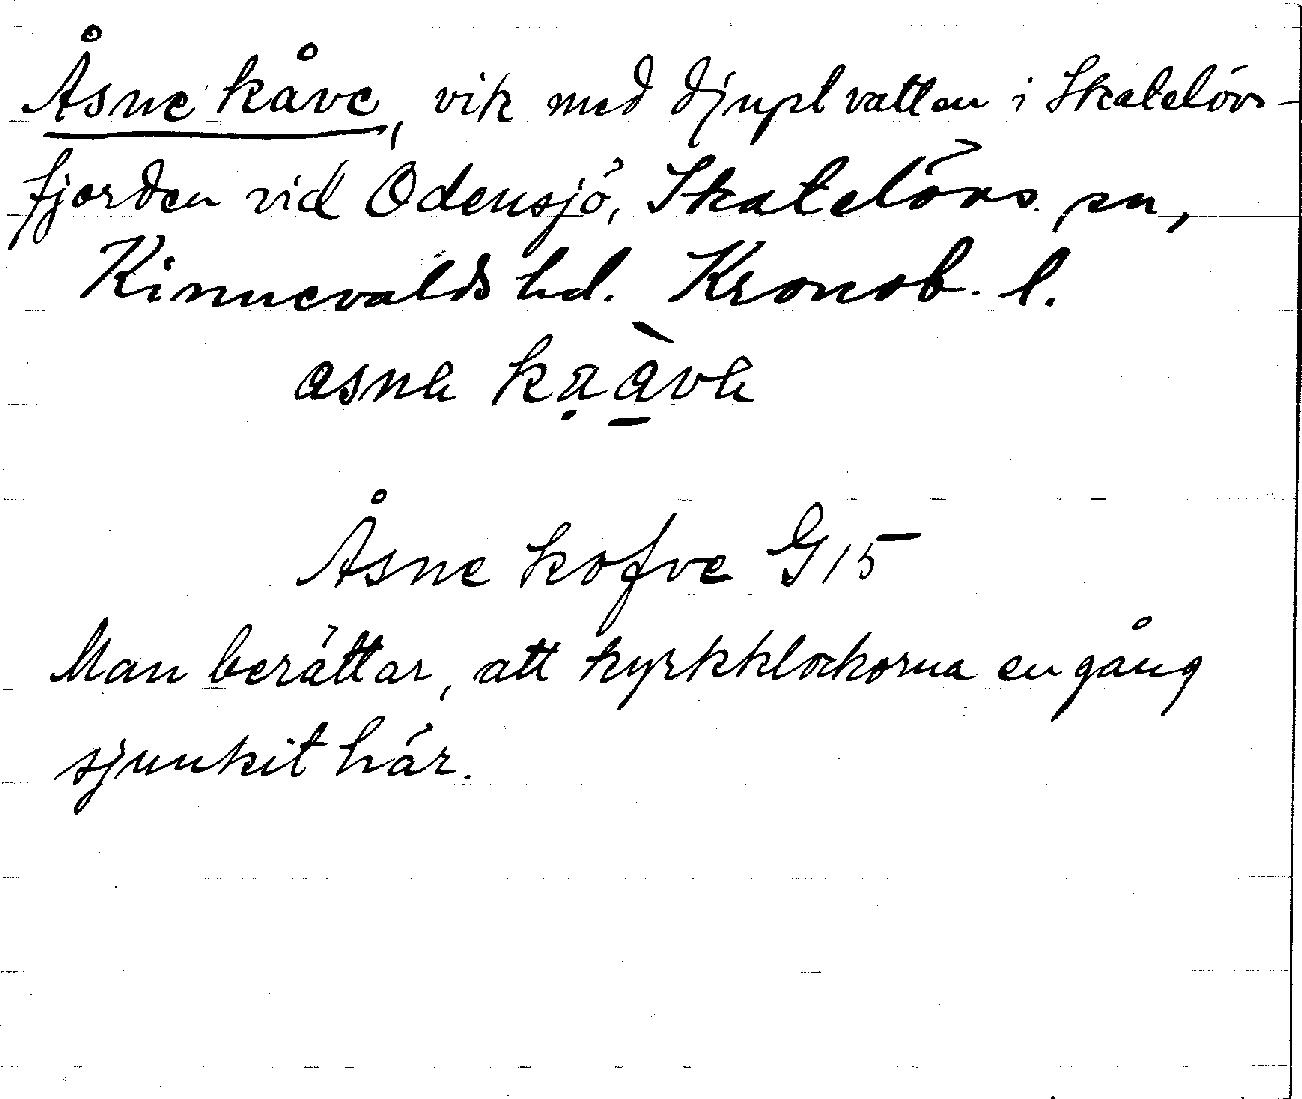 Åsne kåve, vik med djupt vatten i Skatelövs-
fjorden vid Odensjö, Skatelövs sn,
Kinnevalds hd. Kronob. l.
Åsne kofve G15
Man berättar, att kyrkklockorna en gång
sjunkit här.